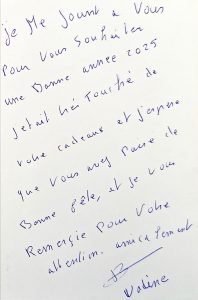 je Me Joint a Vous
Pour Vous Souhaiter
une Bonne annee 2025
J'etait très Touché de
votre cadeaux et j'espère
que Vous avez Passé de
Bonne fête, et je Vous
Remercie Pour Votre
attention. amicalement
Nadine